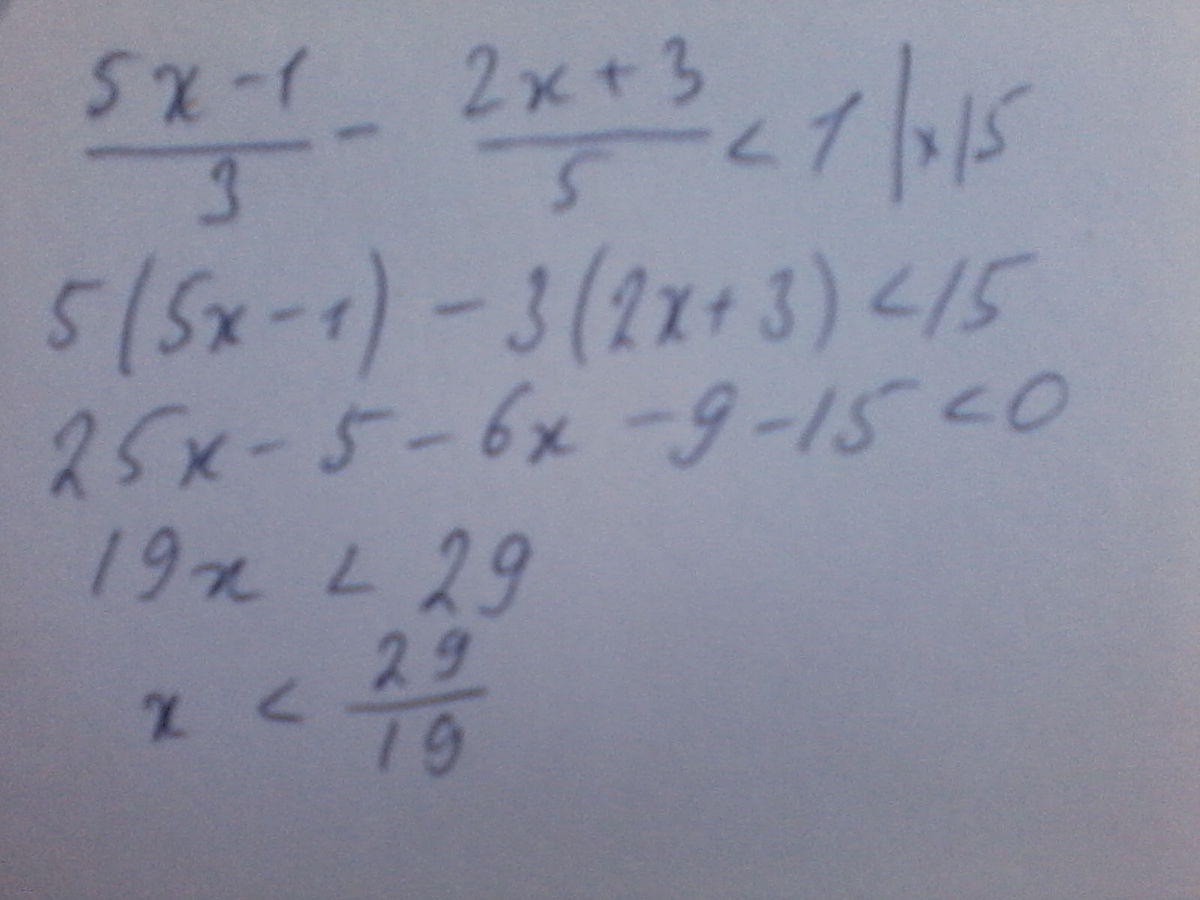 (5x-1)/3 - (2x+3)/5 < 1 | x 15
5(5x-1) - 3(2x+3) < 15
25x - 5 - 6x - 9 - 15 < 0
19x < 29
x < 29/19